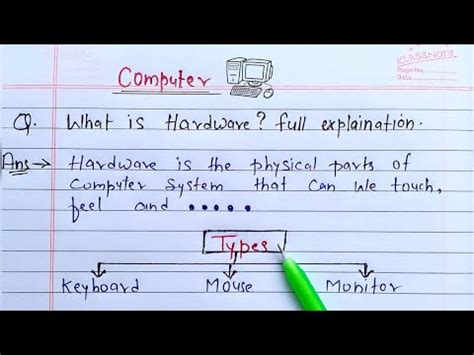 KLASSNOTE
Page No.
Date
Computer
Q. What is Hardware? full explaination.
Ans → Hardware is the physical parts of
Computer System that can we touch,
feel and • • • • •
Types
Keyboard Mouse Monitor